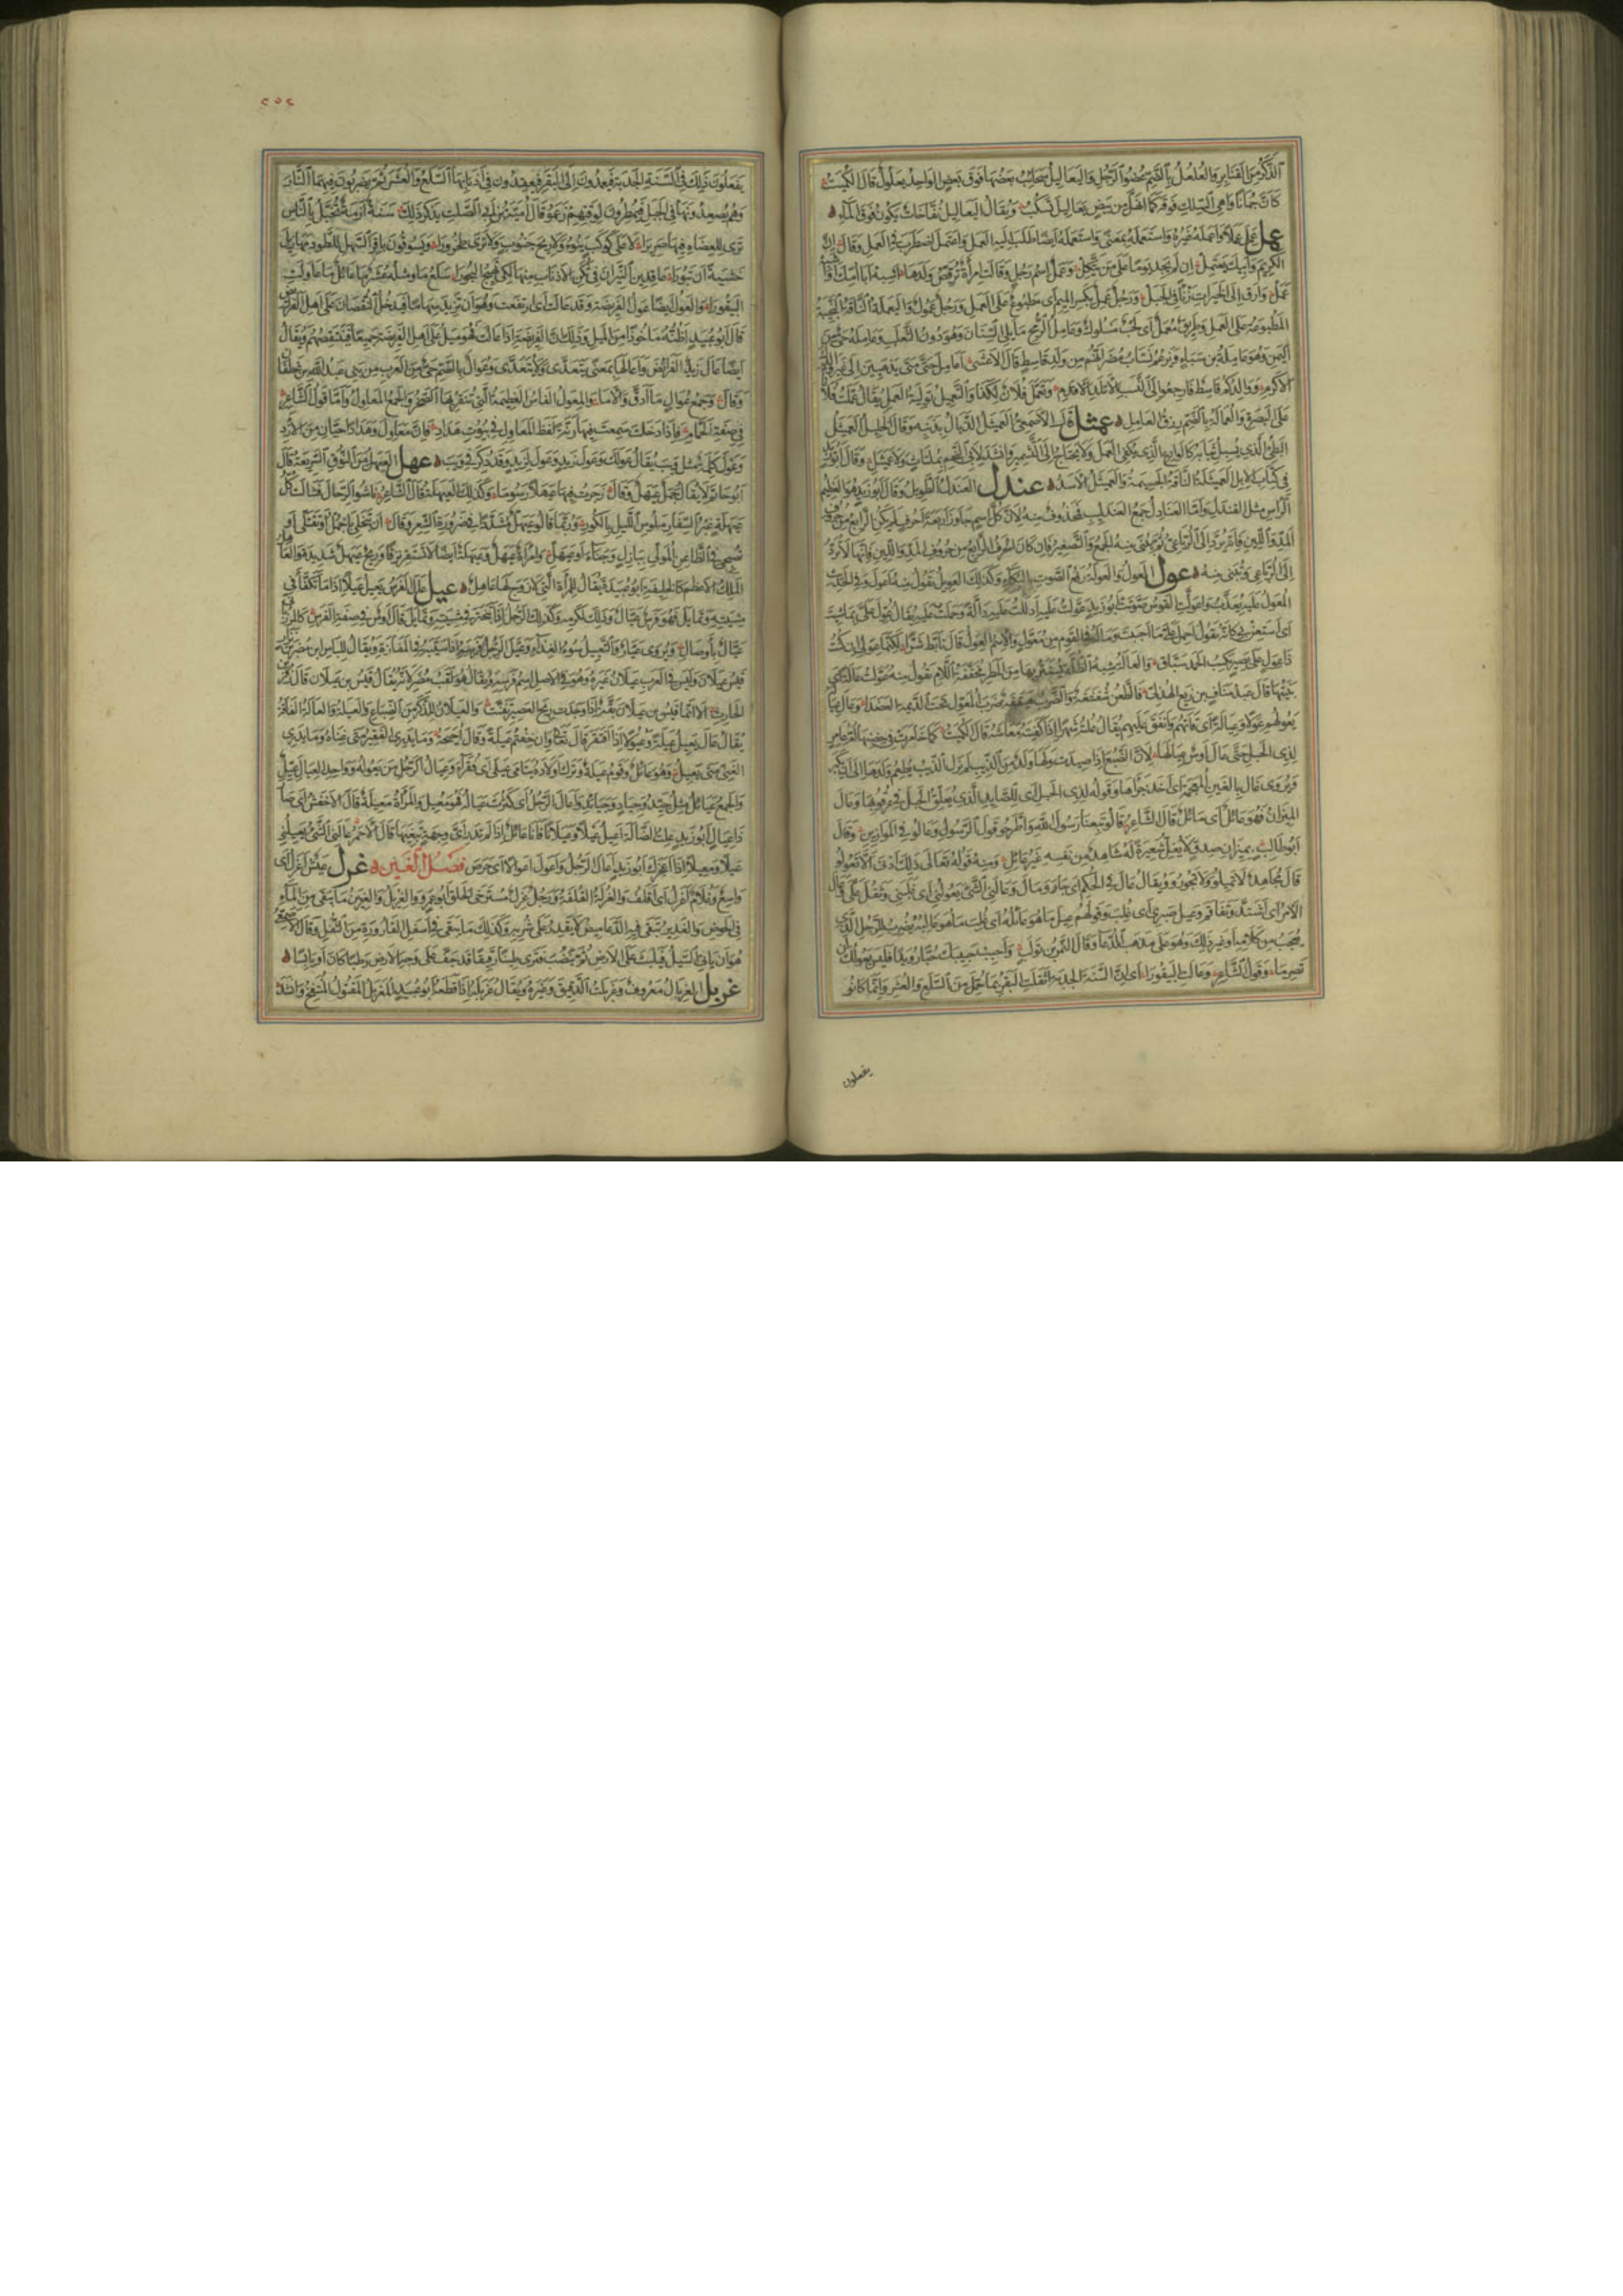 الذكر من القنابر والعلعل بالضم عضو الرجل واليعاليل سحائب بعضها فوق بعض الواحد يعلول قال الكميت
كأن جمانا واهي السلك فوقه كما انهل من بيض يعاليل تسكب ويقال اليعاليل نفاخات يكون فوق الماء
عمل عمل عملا واعمله غيره واستعمله بمعنى واستعمله ايضا اي طلب اليه العمل واعتمل اضطرب في العمل وقال ان
الكريم وابيك يعتمل ان لم يجد يوما على من يتكل وعمل اسم رجل وقالت امرأة ترقص ولدها اشبه ابا امك او اشبه
عمل وارق الى الخيرات زنأ في الجبل ورجل عمل بكسر الميم اي مطبوع على العمل ورجل عمول واليعملة الناقة النجيبة
المطبوعة على العمل وطريق معمل اي لحب مسلوك وعامل الرمح ما يلي السنان وهو دون الثعلب وعاملة حي من
اليمن وهو عاملة بن سباء ويزعم نساب مضر انهم من ولد قاسط قال الاعشى اعامل حتى متى تذهبين الى غير والدك
الاكرم ووالدكم قاسط فارجعوا الى النسب الاتلد الاقدم وتعمل فلان لكذا والتعميل تولية العمل يقال عملت فلانا
على البصرة والعمالة بالضم رزق العامل عمثل قال الاصمعي العميثل الذيال بذنبه وقال الخليل العميثل
البطئ الذي يسبل ثيابه كالوادع الذي يكفي العمل ولا يحتاج الى التشمير وانشد لابي النجم بملتاث ولا عميثل وقال ابو زيد
في كتاب الابل العميثلة الناقة الجسيمة والعميثل الاسد عندل العندل الطويل وقال ابو زيد هو العظيم
الرأس مثل القندل واما العنادل جمع العندليب فمحذوف منه لان كل اسم جاوز اربعة احرف لم يكن الرابع من حروف
المد واللين فانه يرد الى الرباعي ثم يبنى منه الجمع والتصغير فان كان الحرف الرابع من حروف المد واللين فانها لا ترد
الى الرباعي وتبنى منه عول العول والعولة رفع الصوت بالبكاء وكذلك العويل تقول منه اعول وفي الحديث
المعول عليه يعذب واعولت القوس صوتت ابو زيد عولت عليه ادللت عليه دالة وحملت عليه يقال عول علي بما شئت
اي استعن بي كانه يقول احمل علي ما احببت وما له في القوم من معول والاسم العول قال تابط شرا لكنما عولي ان كنت
ذا عول على بصير بكسب الحمد سباق والعالة شبه الظلة يستتر بها من المطر مخففة اللام تقول منه عولت عالة اي
بنيتها قال عبد مناف بن ربع الهذلي فالطعن شغشغة والضرب هيقعة ضرب المعول تحت الديمة العضدا وعال عياله
يعولهم عولا وعيالة اي قاتهم وانفق عليهم يقال علته شهرا اذا كفيته معاشه قال الكميت كما خامرت في حضنها ام عامر
لذي الحبل حتى عال اوس عيالها لان الضبع اذا صيدت ولها ولد من الذئب لم يزل الذئب يطعم ولدها الى ان يكبر
ويروى غال بالغين المعجمة اي اخذ جراءها وقوله لذي الحبل اي للصايد الذي يعلق الحبل في عرقوبها وعال
الميزان فهو عائل اي مائل قال الشاعر قالوا تبعنا رسول الله واطرحوا قول الرسول وعالوا في الموازين وقال
ابو طالب بميزان صدق لا يغل شعيرة له شاهد من نفسه غير عائل ومنه قوله تعالى ذلك ادنى الا تعولوا
قال مجاهد لا تميلوا ولا تجوروا ويقال عال في الحكم اي جار ومال وعالني الشئ يعولني اي غلبني وثقل علي وعال
الامر اي اشتد وتفاقم وعيل صبري اي غلب وقولهم عيل ما هو عائله اي غلب ما هو غالبه يضرب للرجل الذي
يعجب من كلامه او غير ذلك وهو على مذهب الدعاء وقال النمر بن تولب واحبب حبيبك حبا رويدا فليس يعولك ان
تصرما وقول الشاعر وعالت البيقورا اي ان السنة الجدبة اثقلت البقر بما حمل من السلع والعشر وانما كانوا
يفعلون
٢٥٢
يفعلون ذلك في السنة الجدبة فيعمدون الى البقر فيعقدون في اذنابها السلع والعشر ثم يضربون فيها النار
وهم يصعدونها في الجبل فيمطرون لوقتهم زعموا قال امية بن ابي الصلت يذكر ذلك سنة ازمة تخيل بالناس
ترى للعضاه فيها صريرا لا على كوكب ينوء ولا ريح جنوب ولا ترى طخرورا ويسوقون باقر السهل للطود مهازيل
خشية ان تبورا عاقدين النيران في ثكن الاذناب منها لكي تهيج البحورا سلع ما ومثله عشر ما عائل ما وعالت
البيقورا والعول ايضا عول الفريضة وقد عالت اي ارتفعت وهو ان تزيد سهاما فيدخل النقصان على اهل الفرائض
قال ابو عبيد اظنه ماخوذا من الميل وذلك ان الفريضة اذا عالت فهو ميل على اهل الفريضة جميعا فتنتقصهم ويقال
ايضا عال زيد الفرائض واعالها بمعنى يتعدى ولا يتعدى وعوال بالضم حي من العرب من بني عبد الله بن غطفان
وقال وجمع عوال ما ادق والاما والمعول الفاس العظيمة التي ينقر بها الصخر والجمع المعاول واما قول الشاعر
في صفة الحمام فاذا دخلت سمعت فيها رنة لغط المعاول في بيوت هداد فان معاول وهدادا حيان من الازد
وعول كلمة مثل ويب يقال عولك وعول زيد وعول لزيد وقد يذكر في ويب عهل العيهل من النوق السريعة قال
ابو حاتم ولا يقال جمل عيهل وقال زجرت فيها عيهلا رسوما وكذلك العيهلة قال الشاعر ناشوا الرحال فسالت كل
عيهلة عبر السفار ملوس الليل بالكور وربما قالوا عيهل مشددا في ضرورة الشعر وقال ان تبخلي يا جمل او تعتلي او
تصبحي في الظاعن المولي ببازل وجناء او عيهل وامرأة عيهل وعيهلة ايضا لا تستقر نزقا وريح عيهل شديدة والعاهل
الملك الاعظم كالخليفة ابو عبيدة يقال للمرأة التي لا زوج لها عاهل عيل عال الفرس يعيل عيلا اذا ما تكفأ في
مشيته وتمايل فهو فرس عيال وذلك لكرمه وكذلك الرجل اذا تبختر في مشيته وتمايل قال اوس في صفة الفرس كالمرزباني
عيال باوصال ويروى عيار والتعييل سوء الغذاء وعيل الرجل فرسه اذا سيبه في المفازة ويقال الياس بن مضر بن نزار
قيس عيلان وليس في العرب عيلان غيره وهو في الاصل اسم فرسه ويقال هو لقب مضر لانه يقال قيس بن عيلان قال زفر بن
الحارث الا انما قيس بن عيلان بقة اذا وجدت ريح العصير تغنت والعيلان الذكر من الضباع والعيلة والعالة الفاقة
يقال عال يعيل عيلة وعيولا اذا افتقر قال تعالى وان خفتم عيلة وقال احيحة وما يدري الفقير متى غناه وما يدري
الغني متى يعيل وهو عائل وقوم عيلة وترك اولاده يتامى عيلى اي فقراء وعيال الرجل من يعوله وواحد العيال عيل
والجمع عيائل مثل جيد وجياد وجيائد واعال الرجل اي كثرت عياله فهو معيل والمرأة معيلة قال الاخفش اي صار
ذا عيال ابو زيد علت الضالة اعيل عيلا وعيلانا فانا عائل اذا لم تدر اي وجهة تبغيها قال الاحمر عالني الشئ يعيلني
عيلا ومعيلا اذا اعجزك ابو زيد اعال الرجل واعول اعوالا اي حرص فصل الغين غرل عيش اغرل اي
واسع وغلام اغرل اي اقلف والغرلة القلفة ورجل غرل مسترخي الخلق ابو عمرو الغريل والغرين ما يبقى من الماء
في الحوض والغدير تبقى فيه الدعاميص لا يقدر على شربه وكذلك ما يبقى في اسفل القارورة من الثفل وقال الاصمعي
هو ان ياتي السيل فيلبث على الارض ثم ينضب فترى طينا رقيقا قد جف على وجه الارض رطبا كان او يابسا
غربل الغربال معروف وغربلت الدقيق وغيره ويقال غربله اذا قطعه ابو عبيد المغربل المقتول المنتفخ وانشد